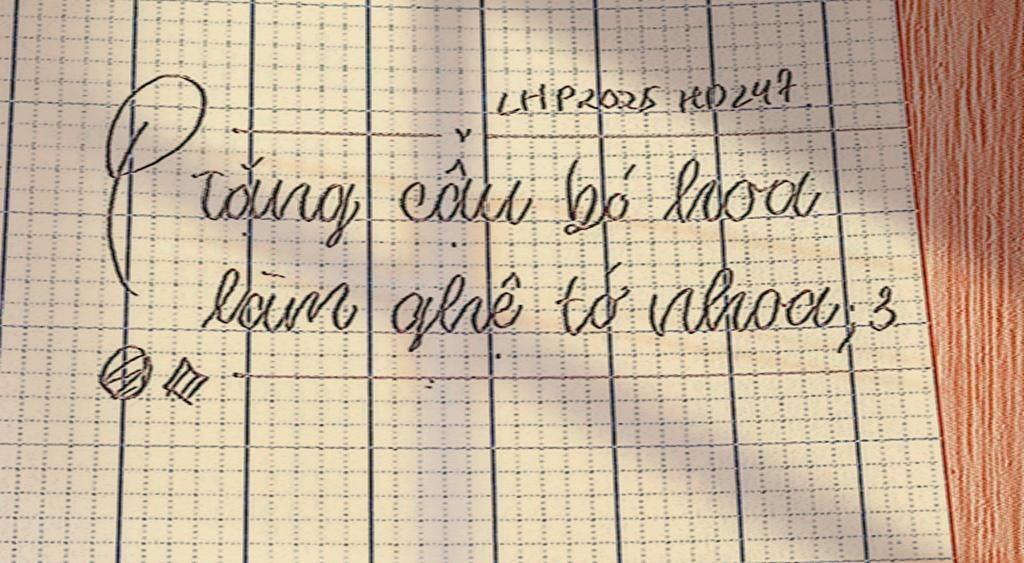 LHP2025 HD247.
Tặng cậu bó hoa
làm ghệ tớ nhoa;3